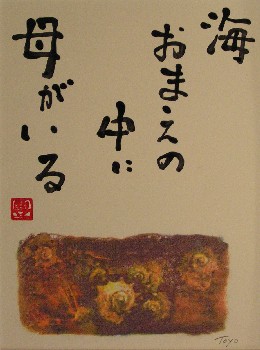 海
おまえの
中に
母がいる
Toyo